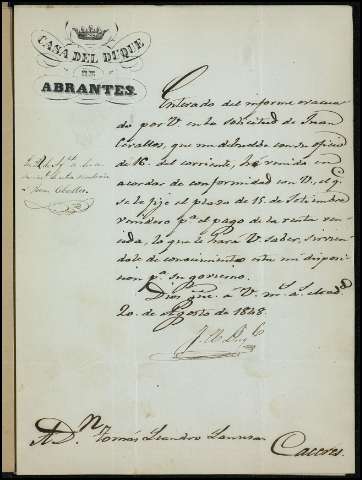 CASA DEL DUQUE
DE
ABRANTES.
Enterado del informe evacua-
do por V. en la solicitud de Juan
Cevallos, que me devolvió con su oficio
de 16 del corriente, he venido en
acordar de conformidad con V. el q.
se le fije el plazo de 15 de Setiembre
venidero p.ª el pago de la renta ven-
cida, lo que le hará V. saber, sirvien-
dole de conocimiento esta mi disposi-
cion p.ª su govierno.
Dios gue. a V. m.s a.s Mad.d
20 de Agosto de 1848.
S.r D.n Tomás Leandro
Caceres.